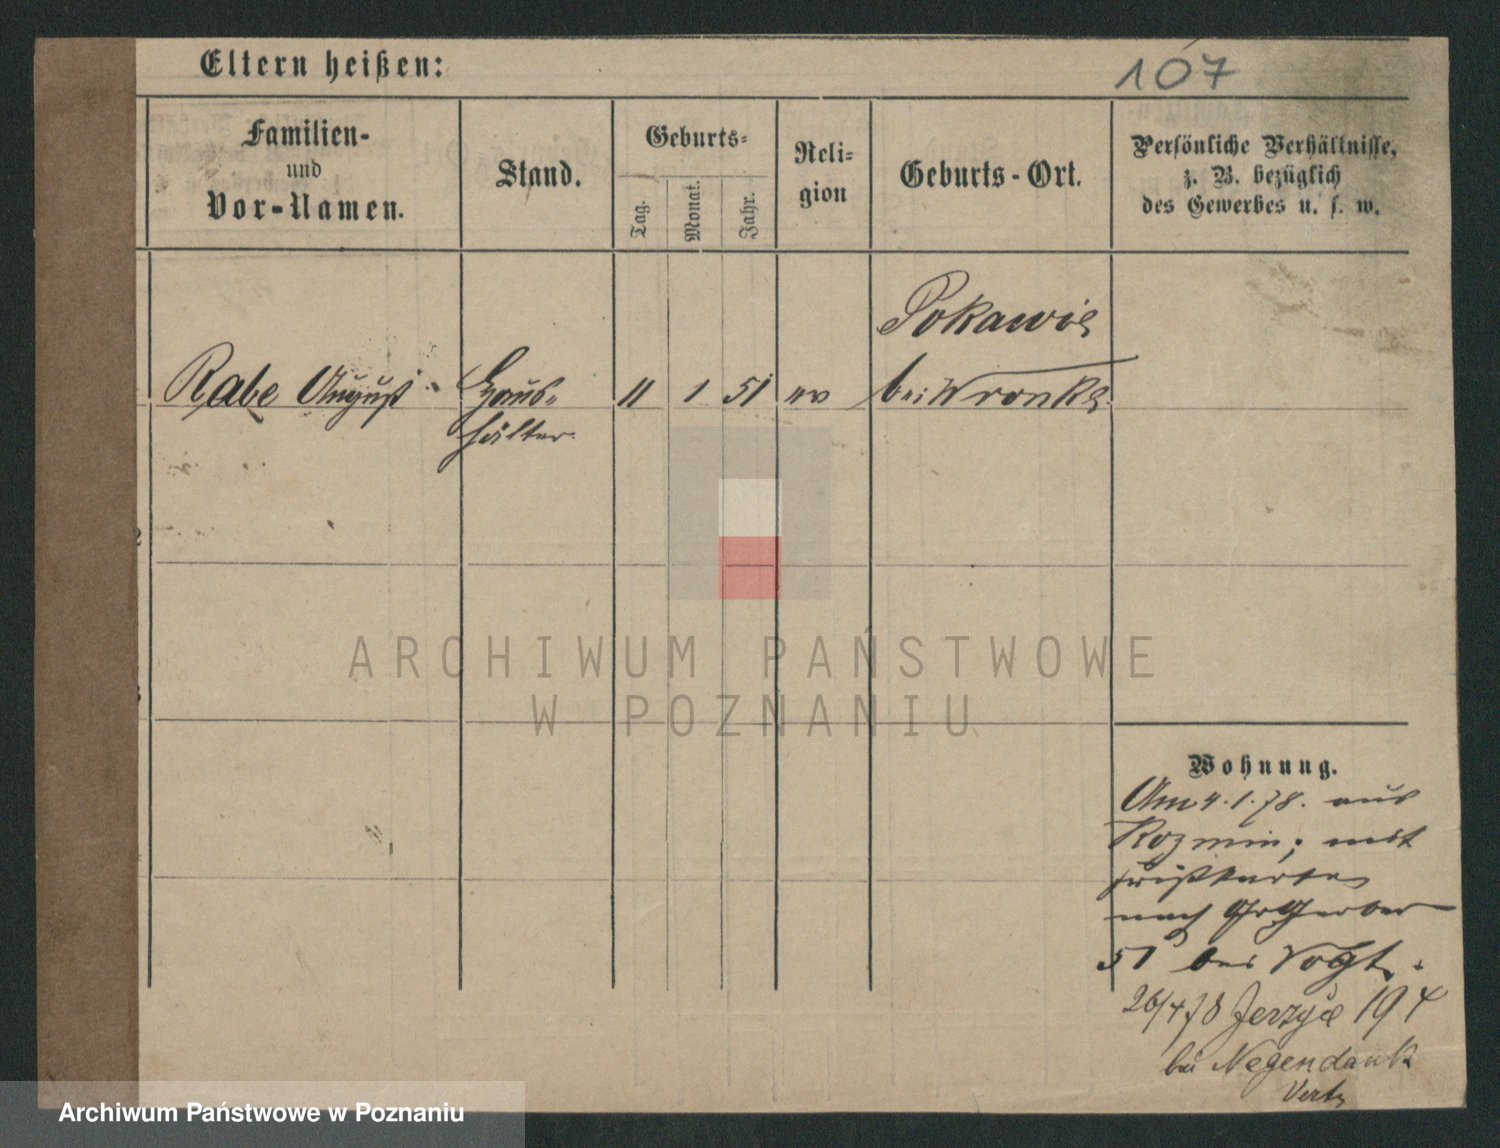 Eltern heißen:
107
Familien-
und
Vor-Namen.
Stand.
Geburts-
Tag.
Monat.
Jahr.
Reli-
gion
Geburts-Ort.
Persönliche Verhältnisse,
z. B. bezüglich
des Gewerbes u. s. w.
Pokawie
Rabe August
Haus-
hälter.
11 1 51 ev
bei Wronke
ARCHIWUM PAŃSTWOWE
W POZNANIU
Wohnung.
Am 4.1.78. aus
Kozmin; mit
nach Gr Gerber
51 bei Vogt.
26/4 78 Jerzyce 194
bei Negendank
Archiwum Państwowe w Poznaniu